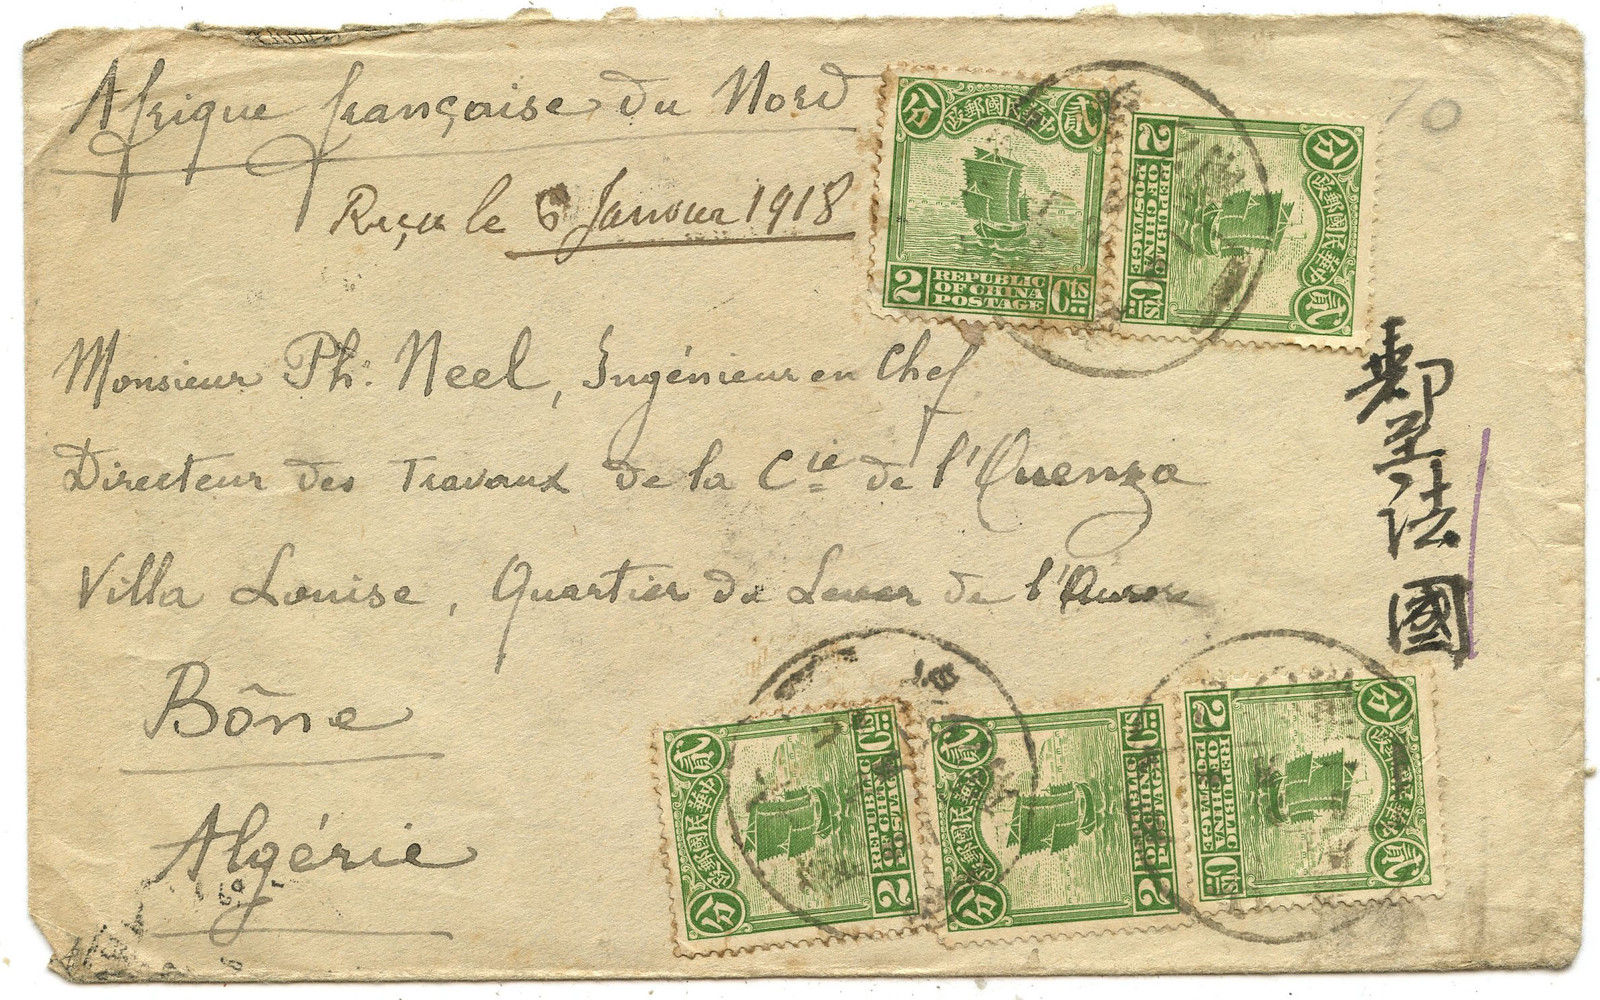 Afrique française du Nord
Reçu le 6 Janvier 1918
Monsieur Ph. Neel, Ingénieur en Chef
Directeur des Travaux de la Cie de l'Ouenza
Villa Louise, Quartier du Lever de l'Aurore
Bône
Algérie
郵至法國
10
中華民國郵政
貳 分
2 REPUBLIC OF CHINA POSTAGE Cts
中華民國郵政
貳 分
2 REPUBLIC OF CHINA POSTAGE Cts
中華民國郵政
貳 分
2 REPUBLIC OF CHINA POSTAGE Cts
中華民國郵政
貳 分
2 REPUBLIC OF CHINA POSTAGE Cts
中華民國郵政
貳 分
2 REPUBLIC OF CHINA POSTAGE Cts